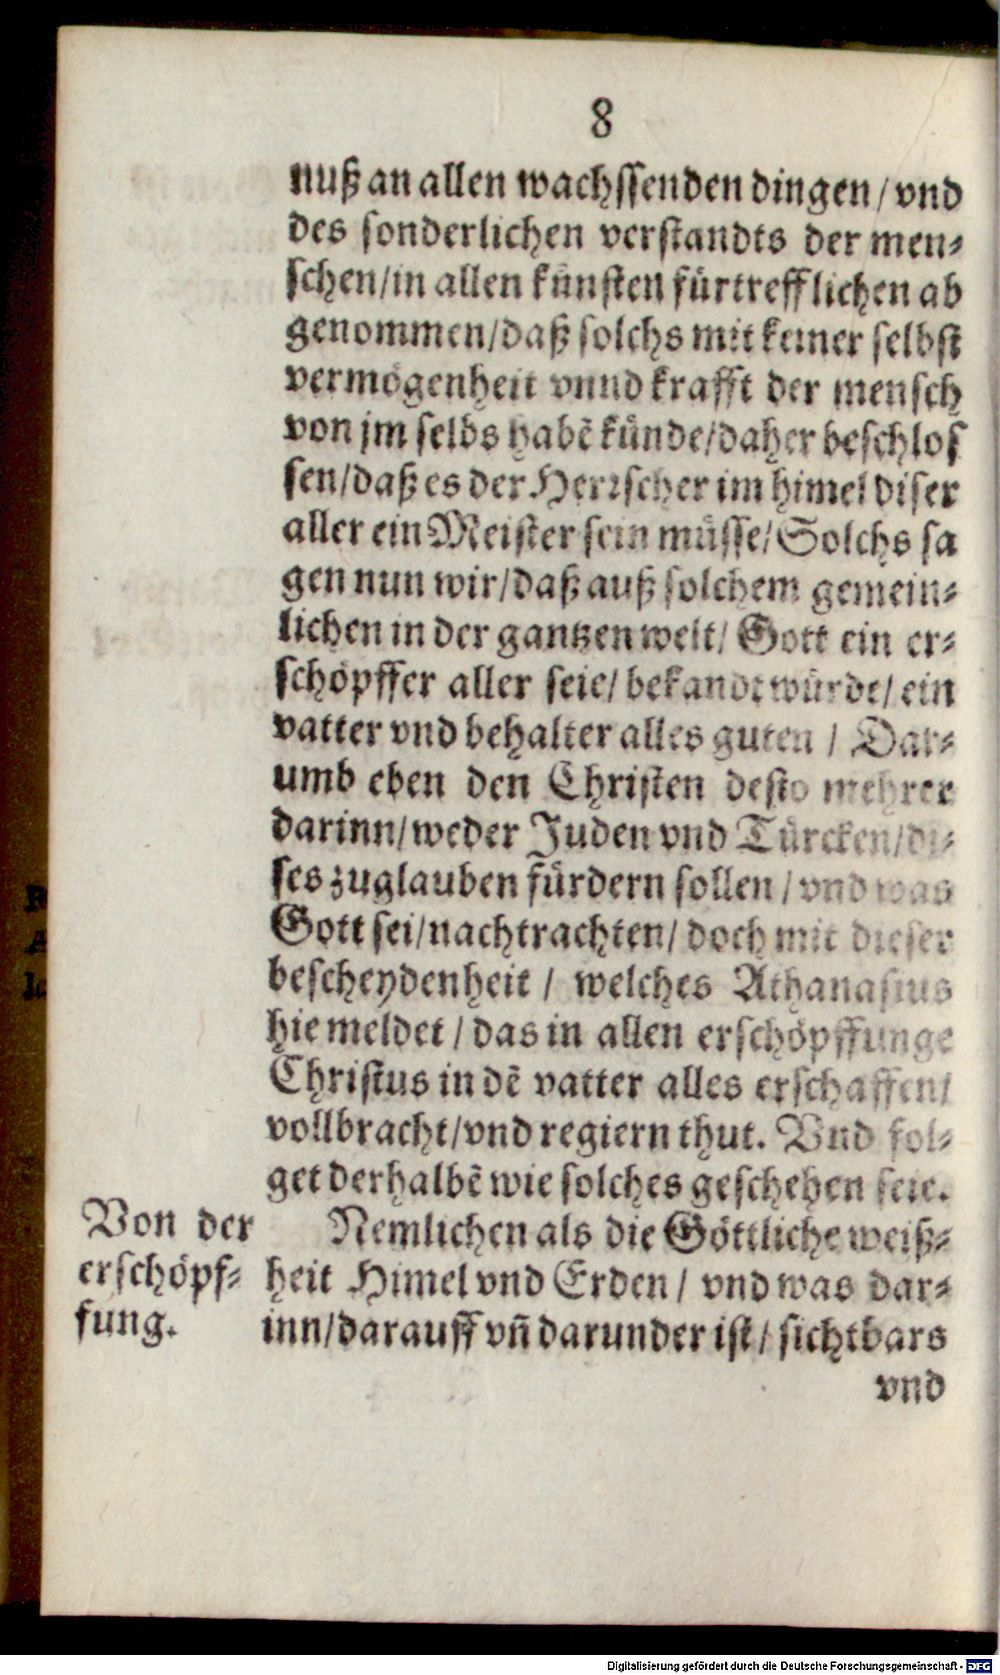 8
nuß an allen wachssenden dingen / vnd
des sonderlichen verstandts der men⸗
schen/in allen künsten fürtrefflichen ab
genommen/daß solchs mit keiner selbst
vermögenheit vnnd krafft der mensch
von jm selbs habē künde/daher beschlos
sen/daß es der Herrscher im himel diser
aller ein Meister sein müsse/Solchs sa
gen nun wir/daß auß solchem gemein⸗
lichen in der gantzen welt/ Gott ein er⸗
schöpffer aller seie/ bekandt würde/ ein
vatter vnd behalter alles guten / Dar⸗
umb eben den Christen desto mehrer
darinn/weder Juden vnd Türcken/di⸗
ses zuglauben fürdern sollen / vnd was
Gott sei/nachtrachten/ doch mit dieser
bescheydenheit / welches Athanasius
hie meldet / das in allen erschöpffunge
Christus in dē vatter alles erschaffen/
vollbracht/vnd regiern thut. Vnd fol⸗
get derhalbē wie solches geschehen seie.
Von der
erschöpf⸗
fung.
Nemlichen als die Göttliche weiß⸗
heit Himel vnd Erden / vnd was dar⸗
inn/darauff vn̄ darunder ist / sichtbars
vnd
Digitalisierung gefördert durch die Deutsche Forschungsgemeinschaft - DFG